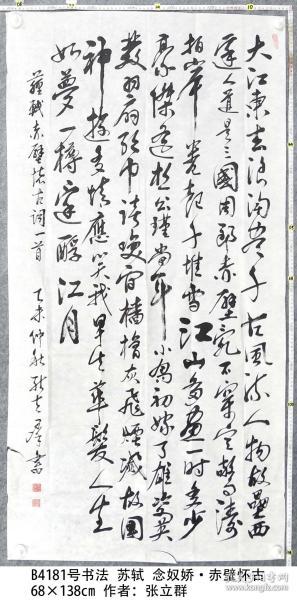 大江東去浪淘盡千古風流人物故壘西
邊人道是三國周郎赤壁亂石穿空驚濤
拍岸卷起千堆雪江山如畫一時多少
豪傑遙想公瑾當年小喬初嫁了雄姿英
發羽扇綸巾談笑間檣櫓灰飛煙滅故國
神遊多情應笑我早生華髮人生
如夢一樽還酹江月
蘇軾赤壁懷古詞一首 乙未仲秋張立群書
B4181号书法 苏轼 念奴娇·赤壁怀古
68×138cm 作者：张立群